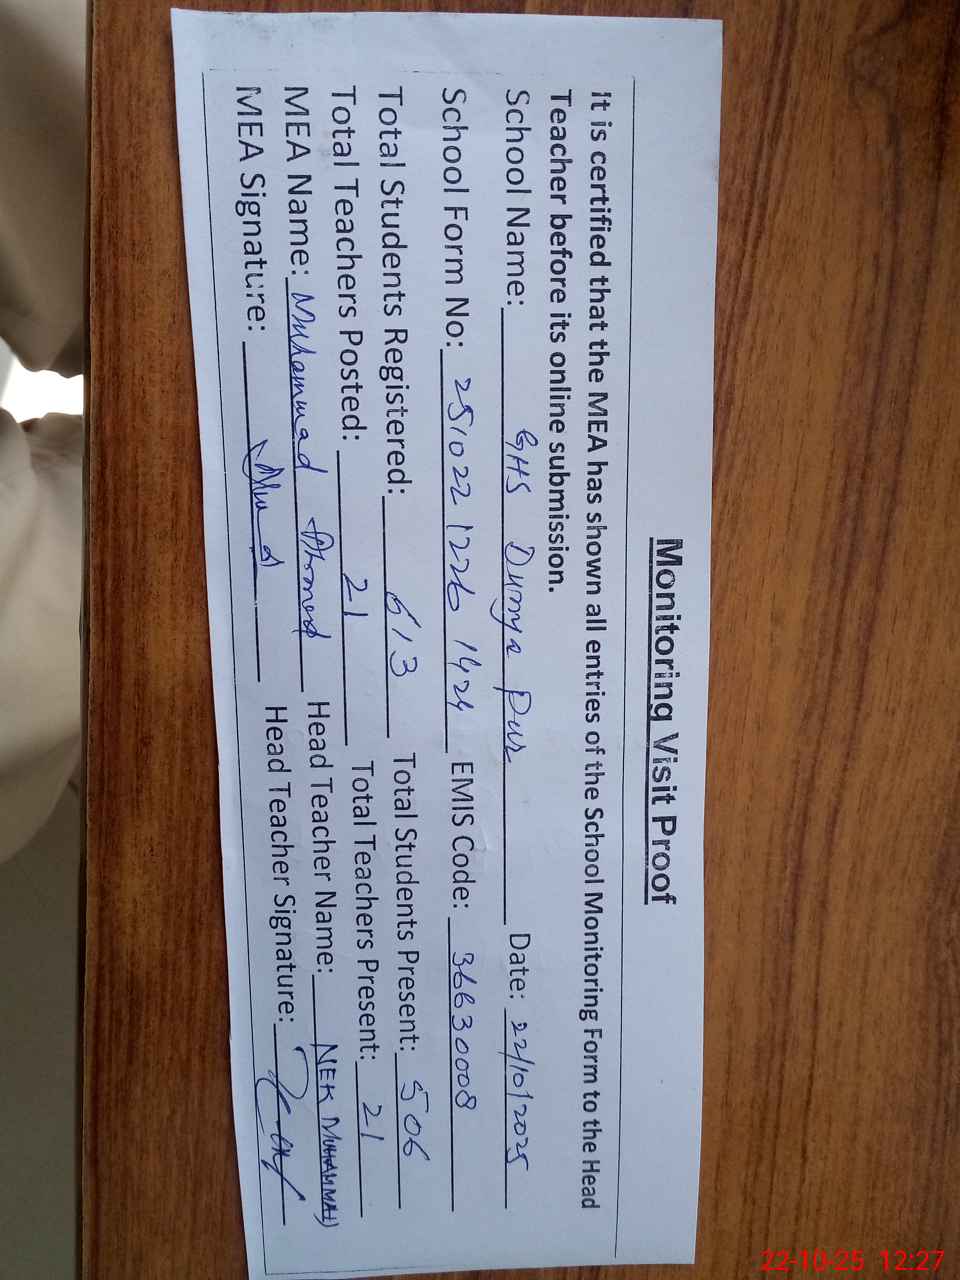 Monitoring Visit Proof
It is certified that the MEA has shown all entries of the School Monitoring Form to the Head
Teacher before its online submission.
School Name: GHS Dunya Pur Date: 22/10/2025
School Form No: 251022 1226 1424 EMIS Code: 36630008
Total Students Registered: 613 Total Students Present: 506
Total Teachers Posted: 21 Total Teachers Present: 21
MEA Name: Muhammad Ahmed Head Teacher Name: NEK MUHAMMAD
MEA Signature: Head Teacher Signature:
22-10-25 12:27